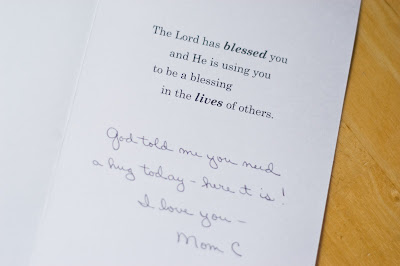 The Lord has blessed you
and He is using you
to be a blessing
in the lives of others.
God told me you need
a hug today - here it is!
I love you -
Mom C